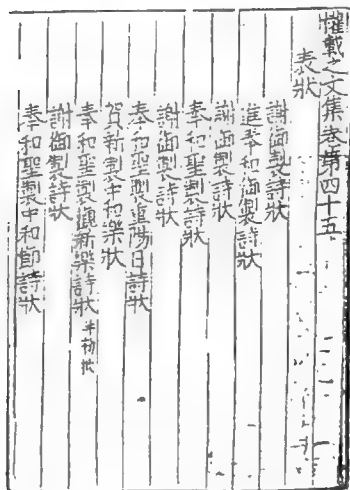 權載之文集卷第四十五
表狀
謝御製詩狀
進奉和御製詩狀
謝御製詩狀
奉和聖製詩狀
謝御製詩狀
奉和聖製重陽日詩狀
賀新製中和樂狀
奉和聖製觀新樂詩狀 并批
謝御製詩狀
奉和聖製中和節詩狀